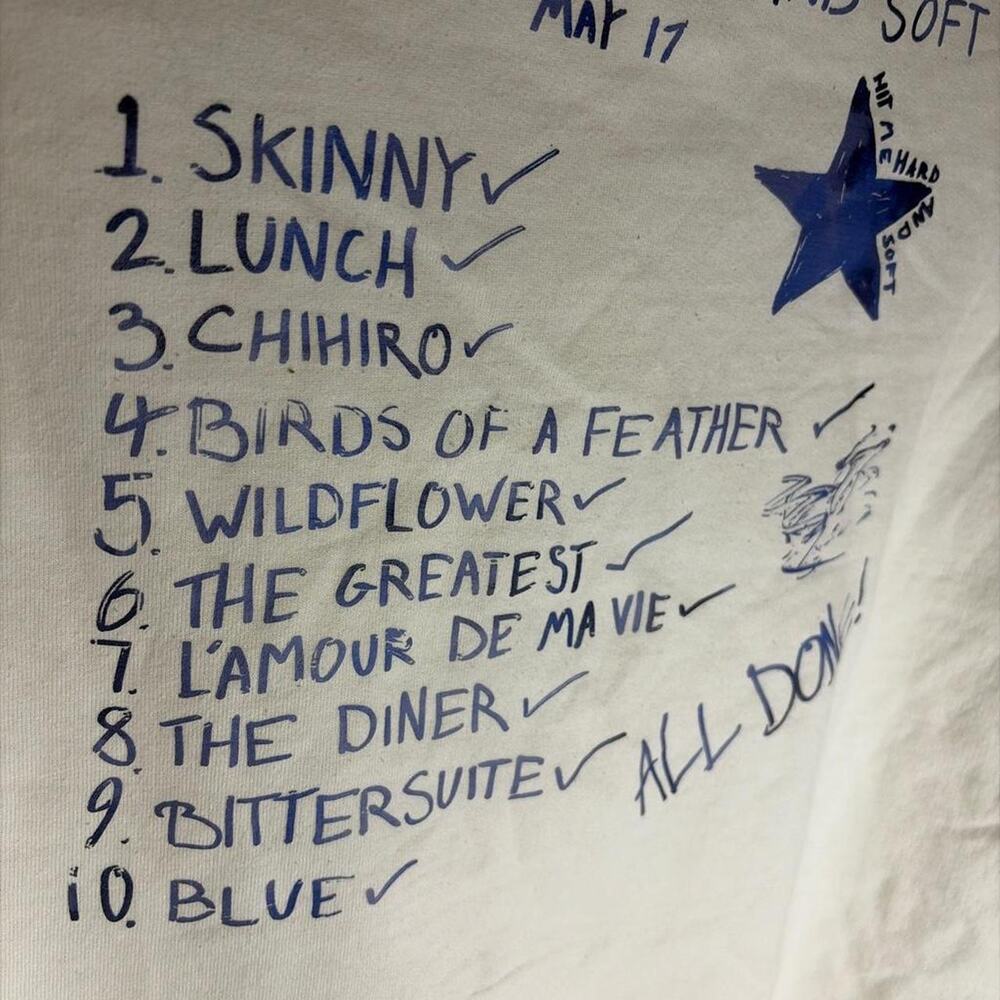 SOFT
MAY 17
HIT ME HARD AND SOFT
1. SKINNY ✓
2. LUNCH ✓
3. CHIHIRO ✓
4. BIRDS OF A FEATHER ✓
5. WILDFLOWER ✓
6. THE GREATEST ✓
7. L'AMOUR DE MA VIE ✓
8. THE DINER ✓
9. BITTERSUITE ✓
ALL DONE!
10. BLUE ✓